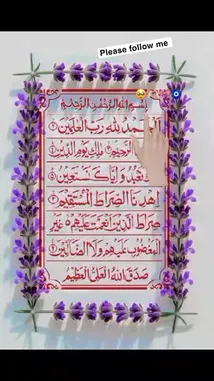 Please follow me
بِسْمِ اللهِ الرَّحْمٰنِ الرَّحِيْمِ
اَلْحَمْدُ لِلّٰهِ رَبِّ الْعٰلَمِيْنَ ١
الرَّحِيْمِ ٢ مٰلِكِ يَوْمِ الدِّيْنِ ٣
نَعْبُدُ وَاِيَّاكَ نَسْتَعِيْنُ ٤
اِهْدِنَا الصِّرَاطَ الْمُسْتَقِيْمَ ٥
صِرَاطَ الَّذِيْنَ اَنْعَمْتَ عَلَيْهِمْ غَيْرِ
الْمَغْضُوْبِ عَلَيْهِمْ وَلَا الضَّآلِّيْنَ
صَدَقَ اللهُ الْعَلِيُّ الْعَظِيْمُ